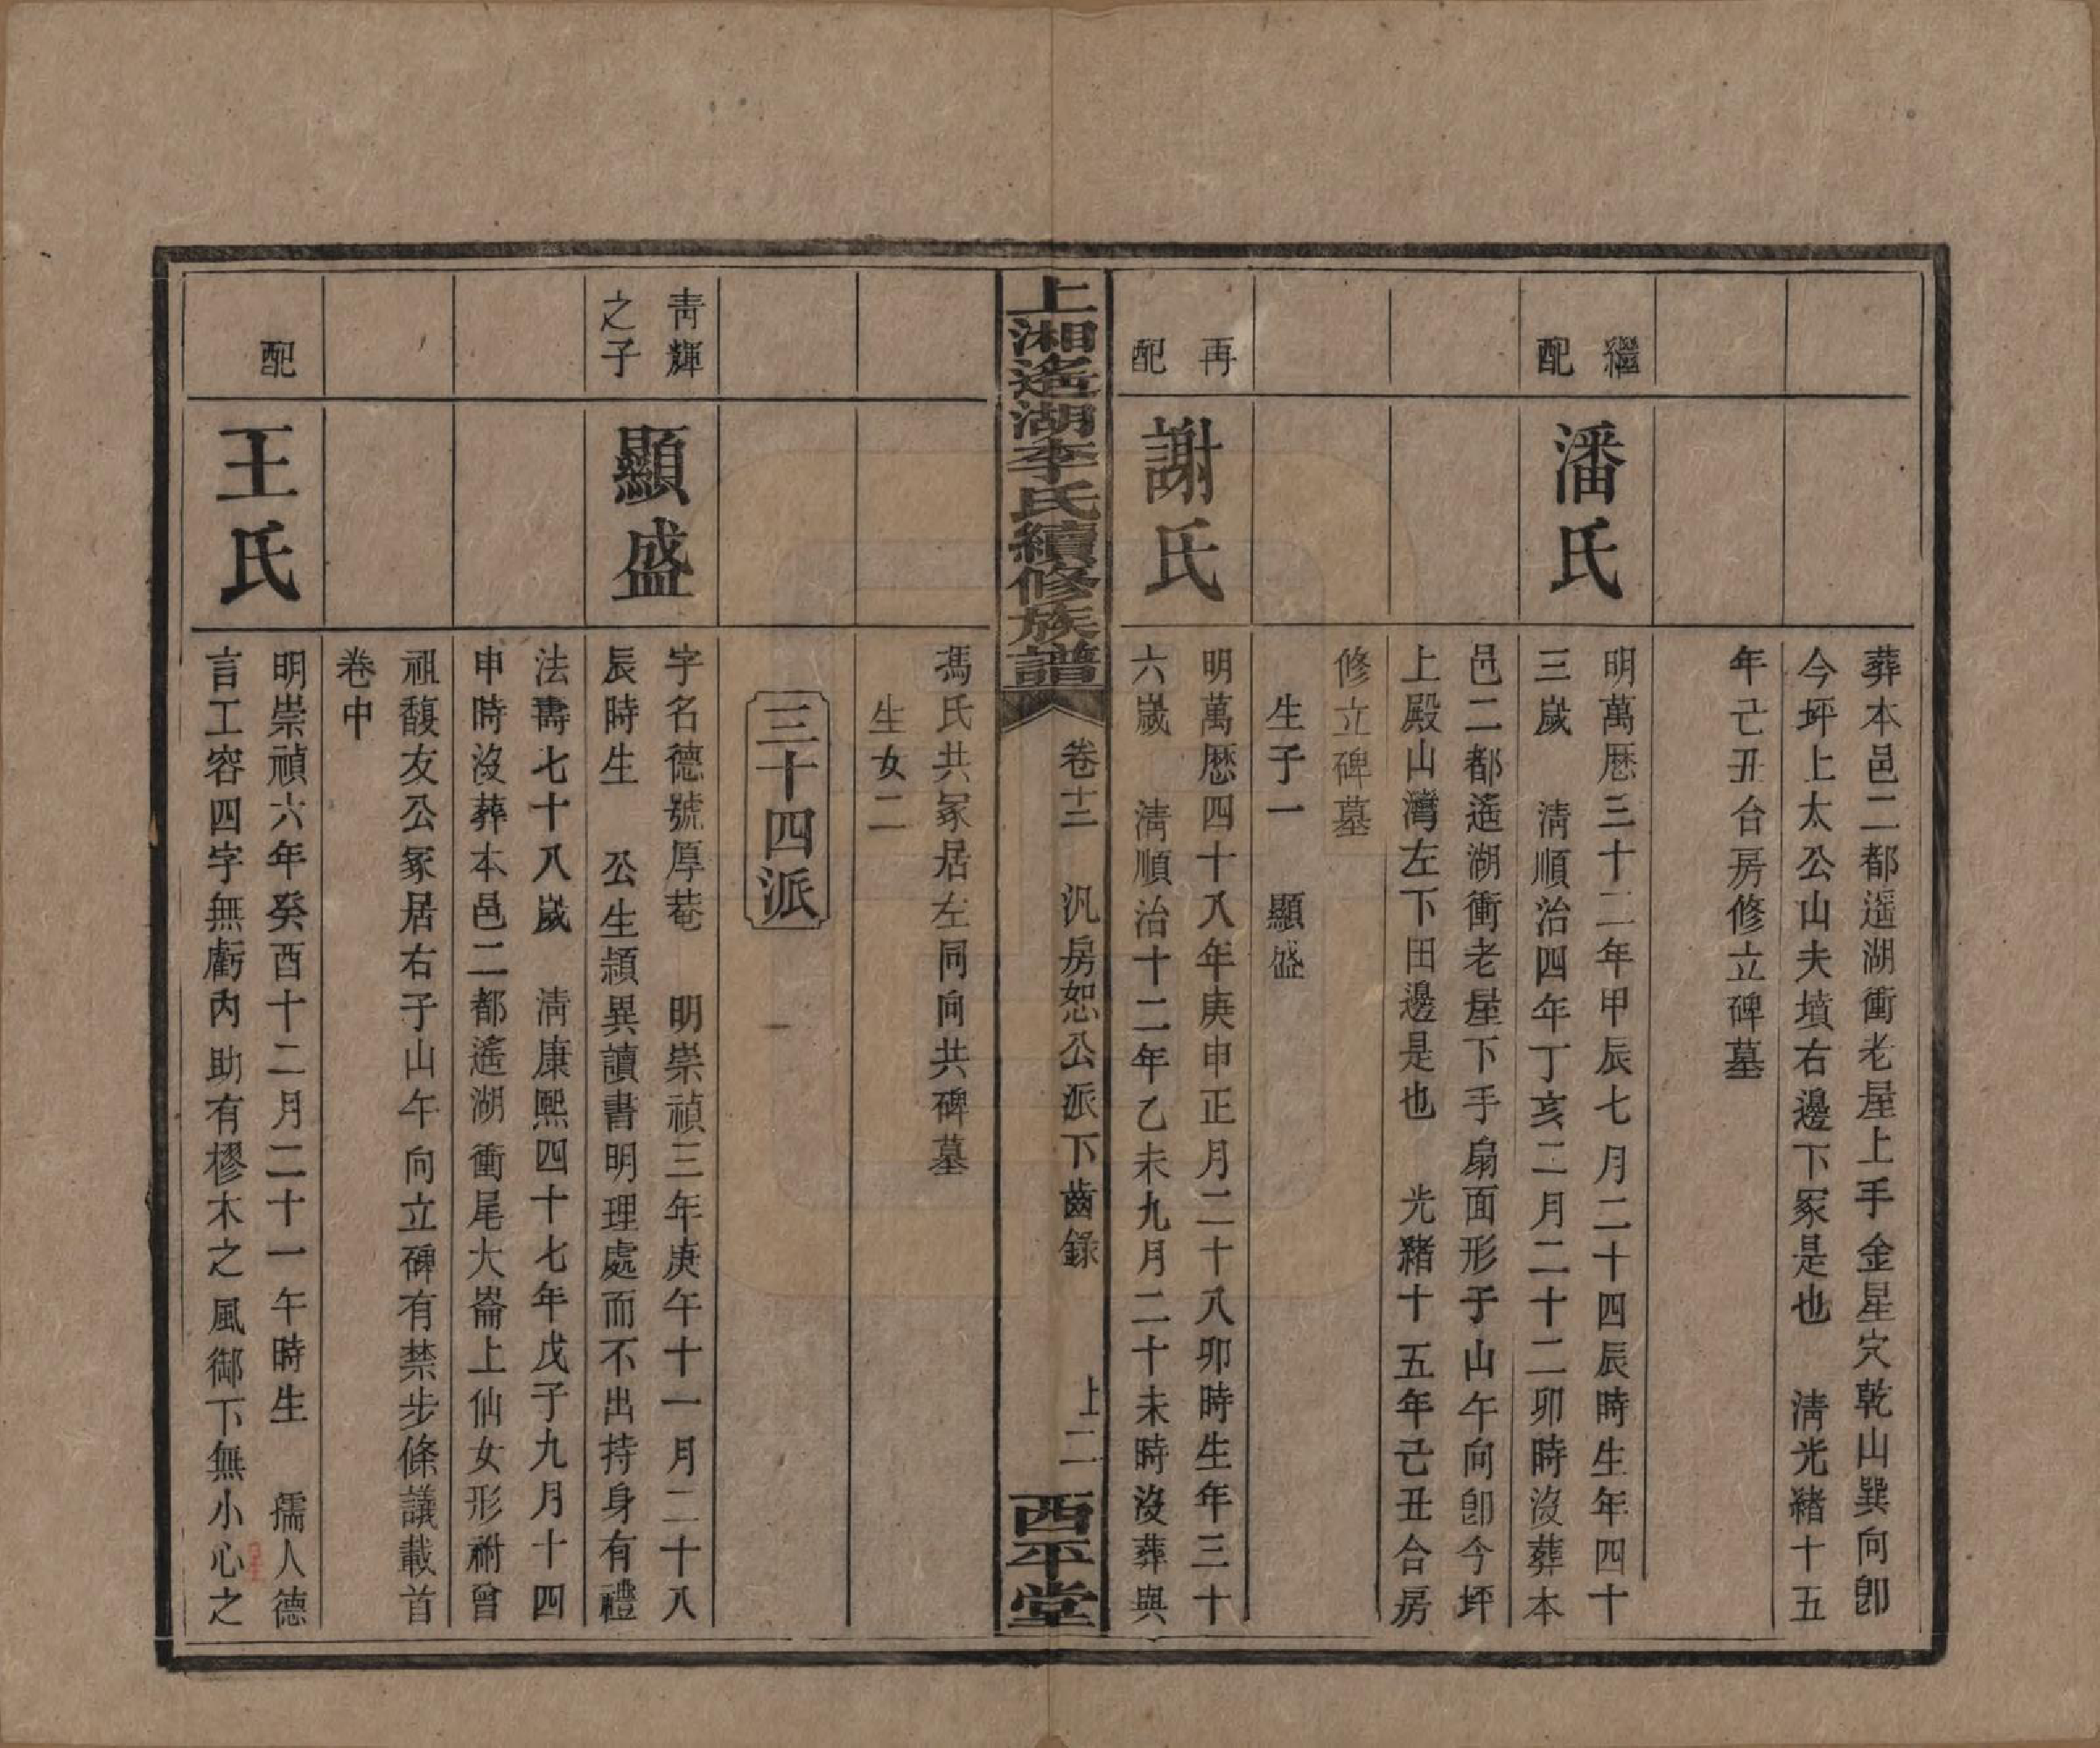 葬本邑二都遥湖衝老屋上手金星穴乾山巽向卽
今坪上太公山夫墳右邊下冢是也　淸光緒十五
年己丑合房修立碑墓
繼配
潘氏
明萬厯三十二年甲辰七月二十四辰時生年四十
三歲　淸順治四年丁亥二月二十二卯時沒葬本
邑二都遥湖衝老屋下手扇面形子山午向卽今坪
上殿山灣左下田邊是也　光緒十五年己丑合房
修立碑墓
生子一　顯盛
再配
謝氏
明萬厯四十八年庚申正月二十八卯時生年三十
六歲　淸順治十二年乙未九月二十未時沒葬與
上湘遥湖李氏續修族譜
卷十二　汎房恕公派下齒錄　上二
西平堂
馮氏共冢居左同向共碑墓
生女二
三十四派
靑輝之子
顯盛
字名德號厚菴　明崇禎三年庚午十一月二十八
辰時生　公生頴異讀書明理處而不出持身有禮
法壽七十八歲　淸康熙四十七年戊子九月十四
申時沒葬本邑二都遥湖衝尾大崙上仙女形祔曾
祖馥友公冢居右子山午向立碑有禁步條議載首
卷中
配
王氏
明崇禎六年癸酉十二月二十一午時生　孺人德
言工容四字無虧內助有樛木之風御下無小心之